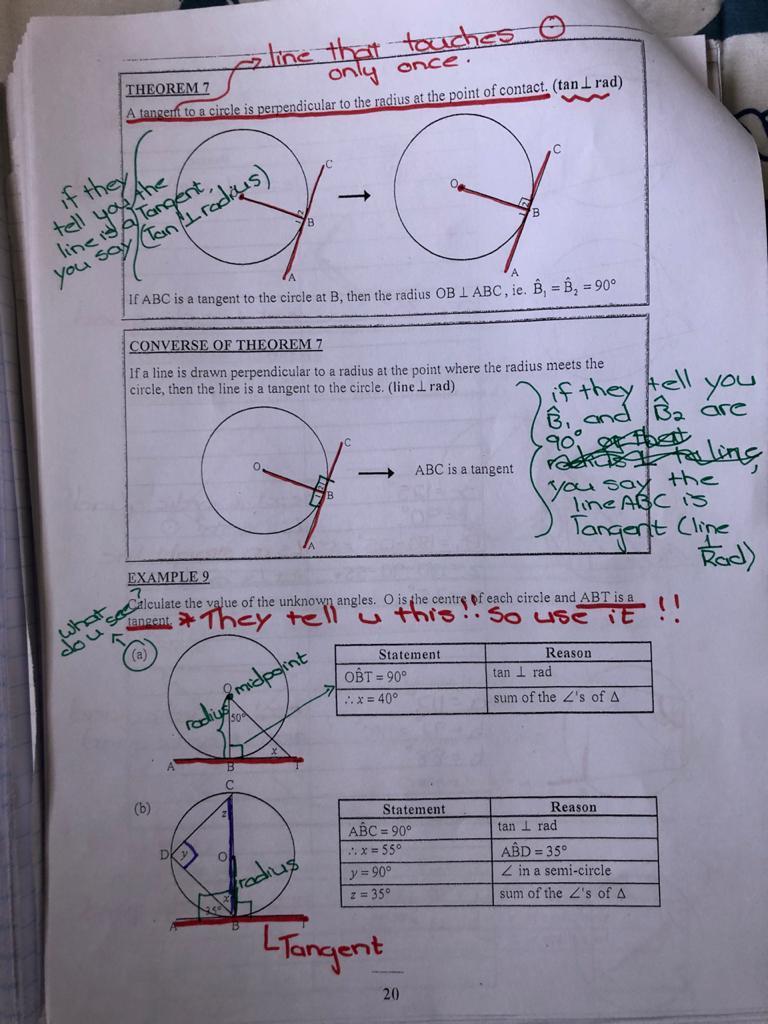 line that touches
only once.
THEOREM 7
A tangent to a circle is perpendicular to the radius at the point of contact. (tan ⊥ rad)
if they
tell you the
line is a Tangent,
you say (Tan ⊥ radius)
C
1 2
B
A
O
C
1 2
B
A
If ABC is a tangent to the circle at B, then the radius OB ⊥ ABC, ie. B̂₁ = B̂₂ = 90°
CONVERSE OF THEOREM 7
If a line is drawn perpendicular to a radius at the point where the radius meets the
circle, then the line is a tangent to the circle. (line ⊥ rad)
O
C
1 2
B
A
ABC is a tangent
if they tell you
B̂₁ and B̂₂ are
90°
you say the
line ABC is
Tangent (line
⊥
Rad)
EXAMPLE 9
Calculate the value of the unknown angles. O is the centre of each circle and ABT is a
tangent. * They tell u this!! So use it !!
what
do u see?
(a)
O midpoint
radius
50°
x
A B T
Statement Reason
OB̂T = 90° tan ⊥ rad
∴ x = 40° sum of the ∠'s of Δ
(b)
C
z
D y
O
radius
x
35°
A B T
Tangent
Statement Reason
AB̂C = 90° tan ⊥ rad
∴ x = 55° AB̂D = 35°
y = 90° ∠ in a semi-circle
z = 35° sum of the ∠'s of Δ
20